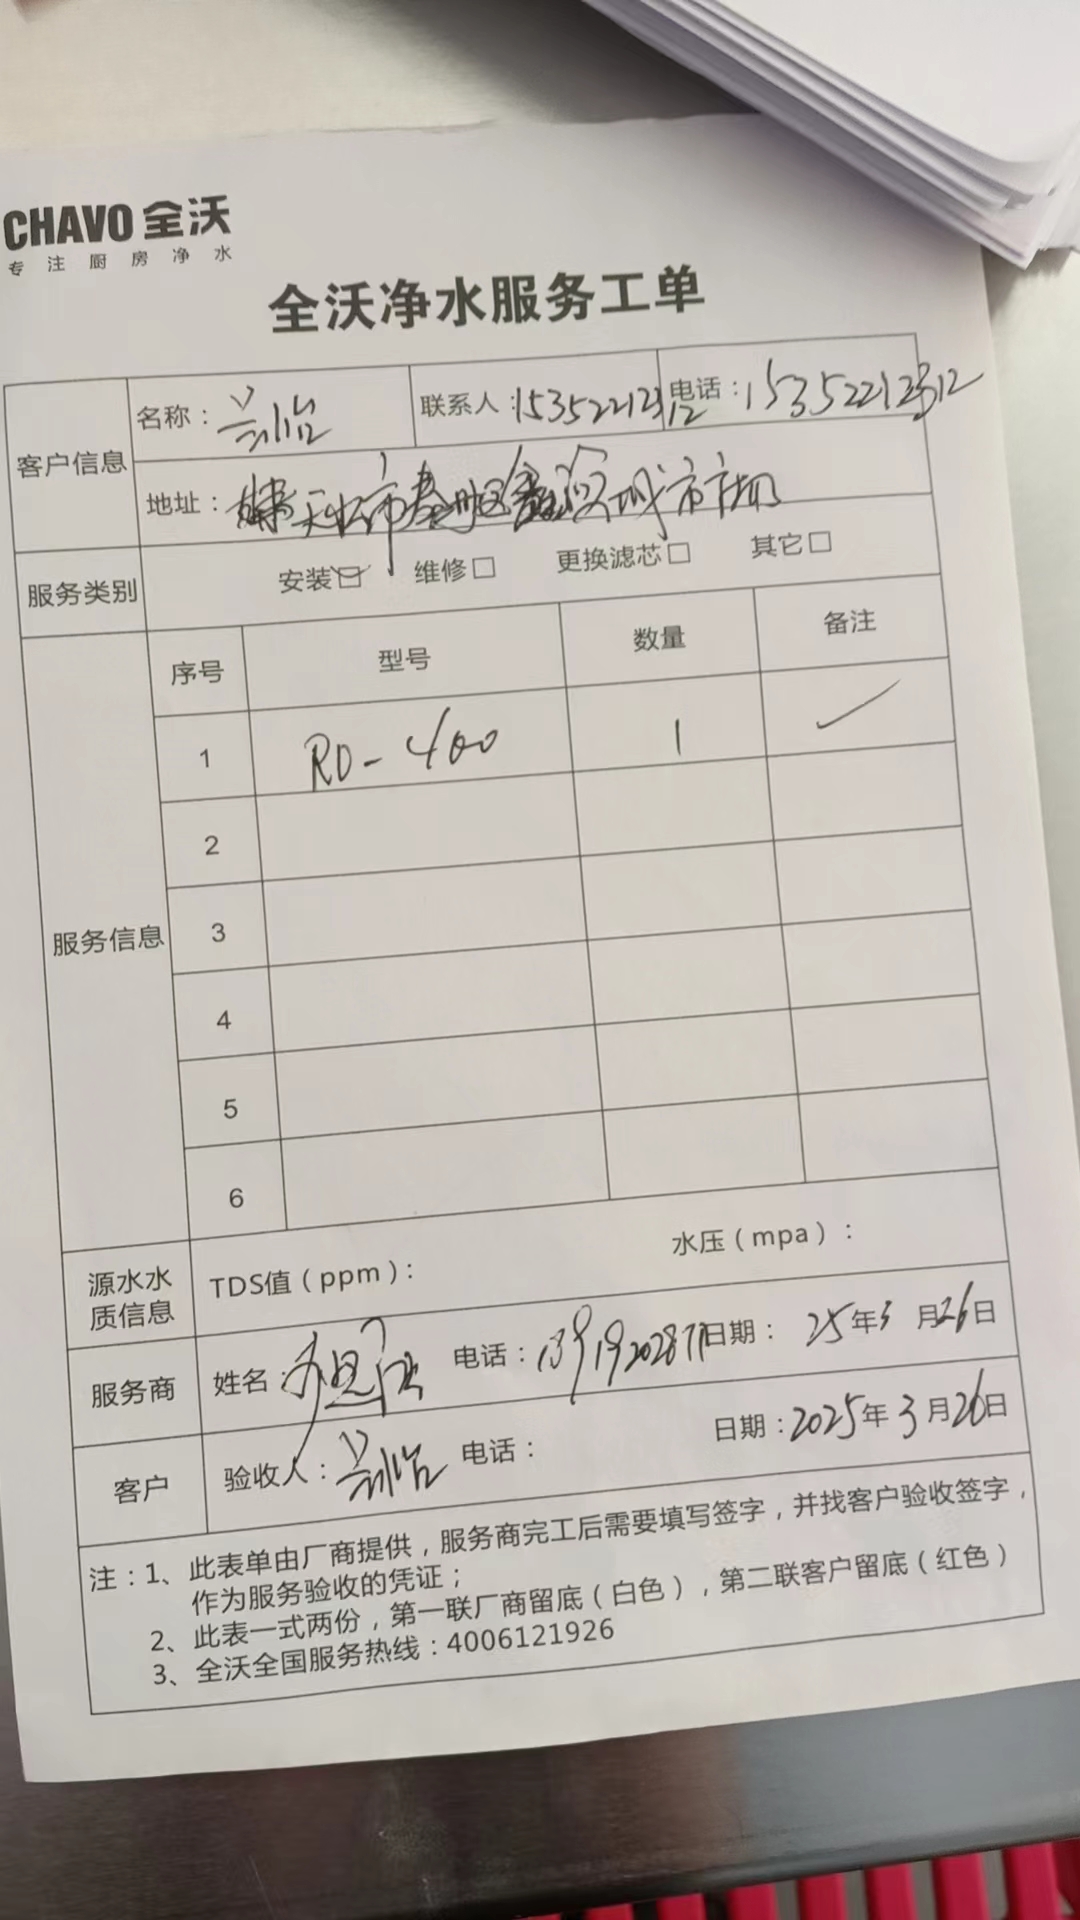 CHAVO 全沃
专注厨房净水
全沃净水服务工单
客户信息
名称：兰怡 联系人：15352212312 电话：15352212312
地址：天水市秦州区城市
服务类别 安装☑ 维修□ 更换滤芯□ 其它□
服务信息
序号 型号 数量 备注
1 RO-400 1 ✓
2
3
4
5
6
源水水质信息 TDS值（ppm）： 水压（mpa）：
服务商 姓名： 电话：13919202877 日期：25年3月26日
客户 验收人：兰怡 电话： 日期：2025年3月26日
注：1、此表单由厂商提供，服务商完工后需要填写签字，并找客户验收签字，
作为服务验收的凭证；
2、此表一式两份，第一联厂商留底（白色），第二联客户留底（红色）
3、全沃全国服务热线：4006121926